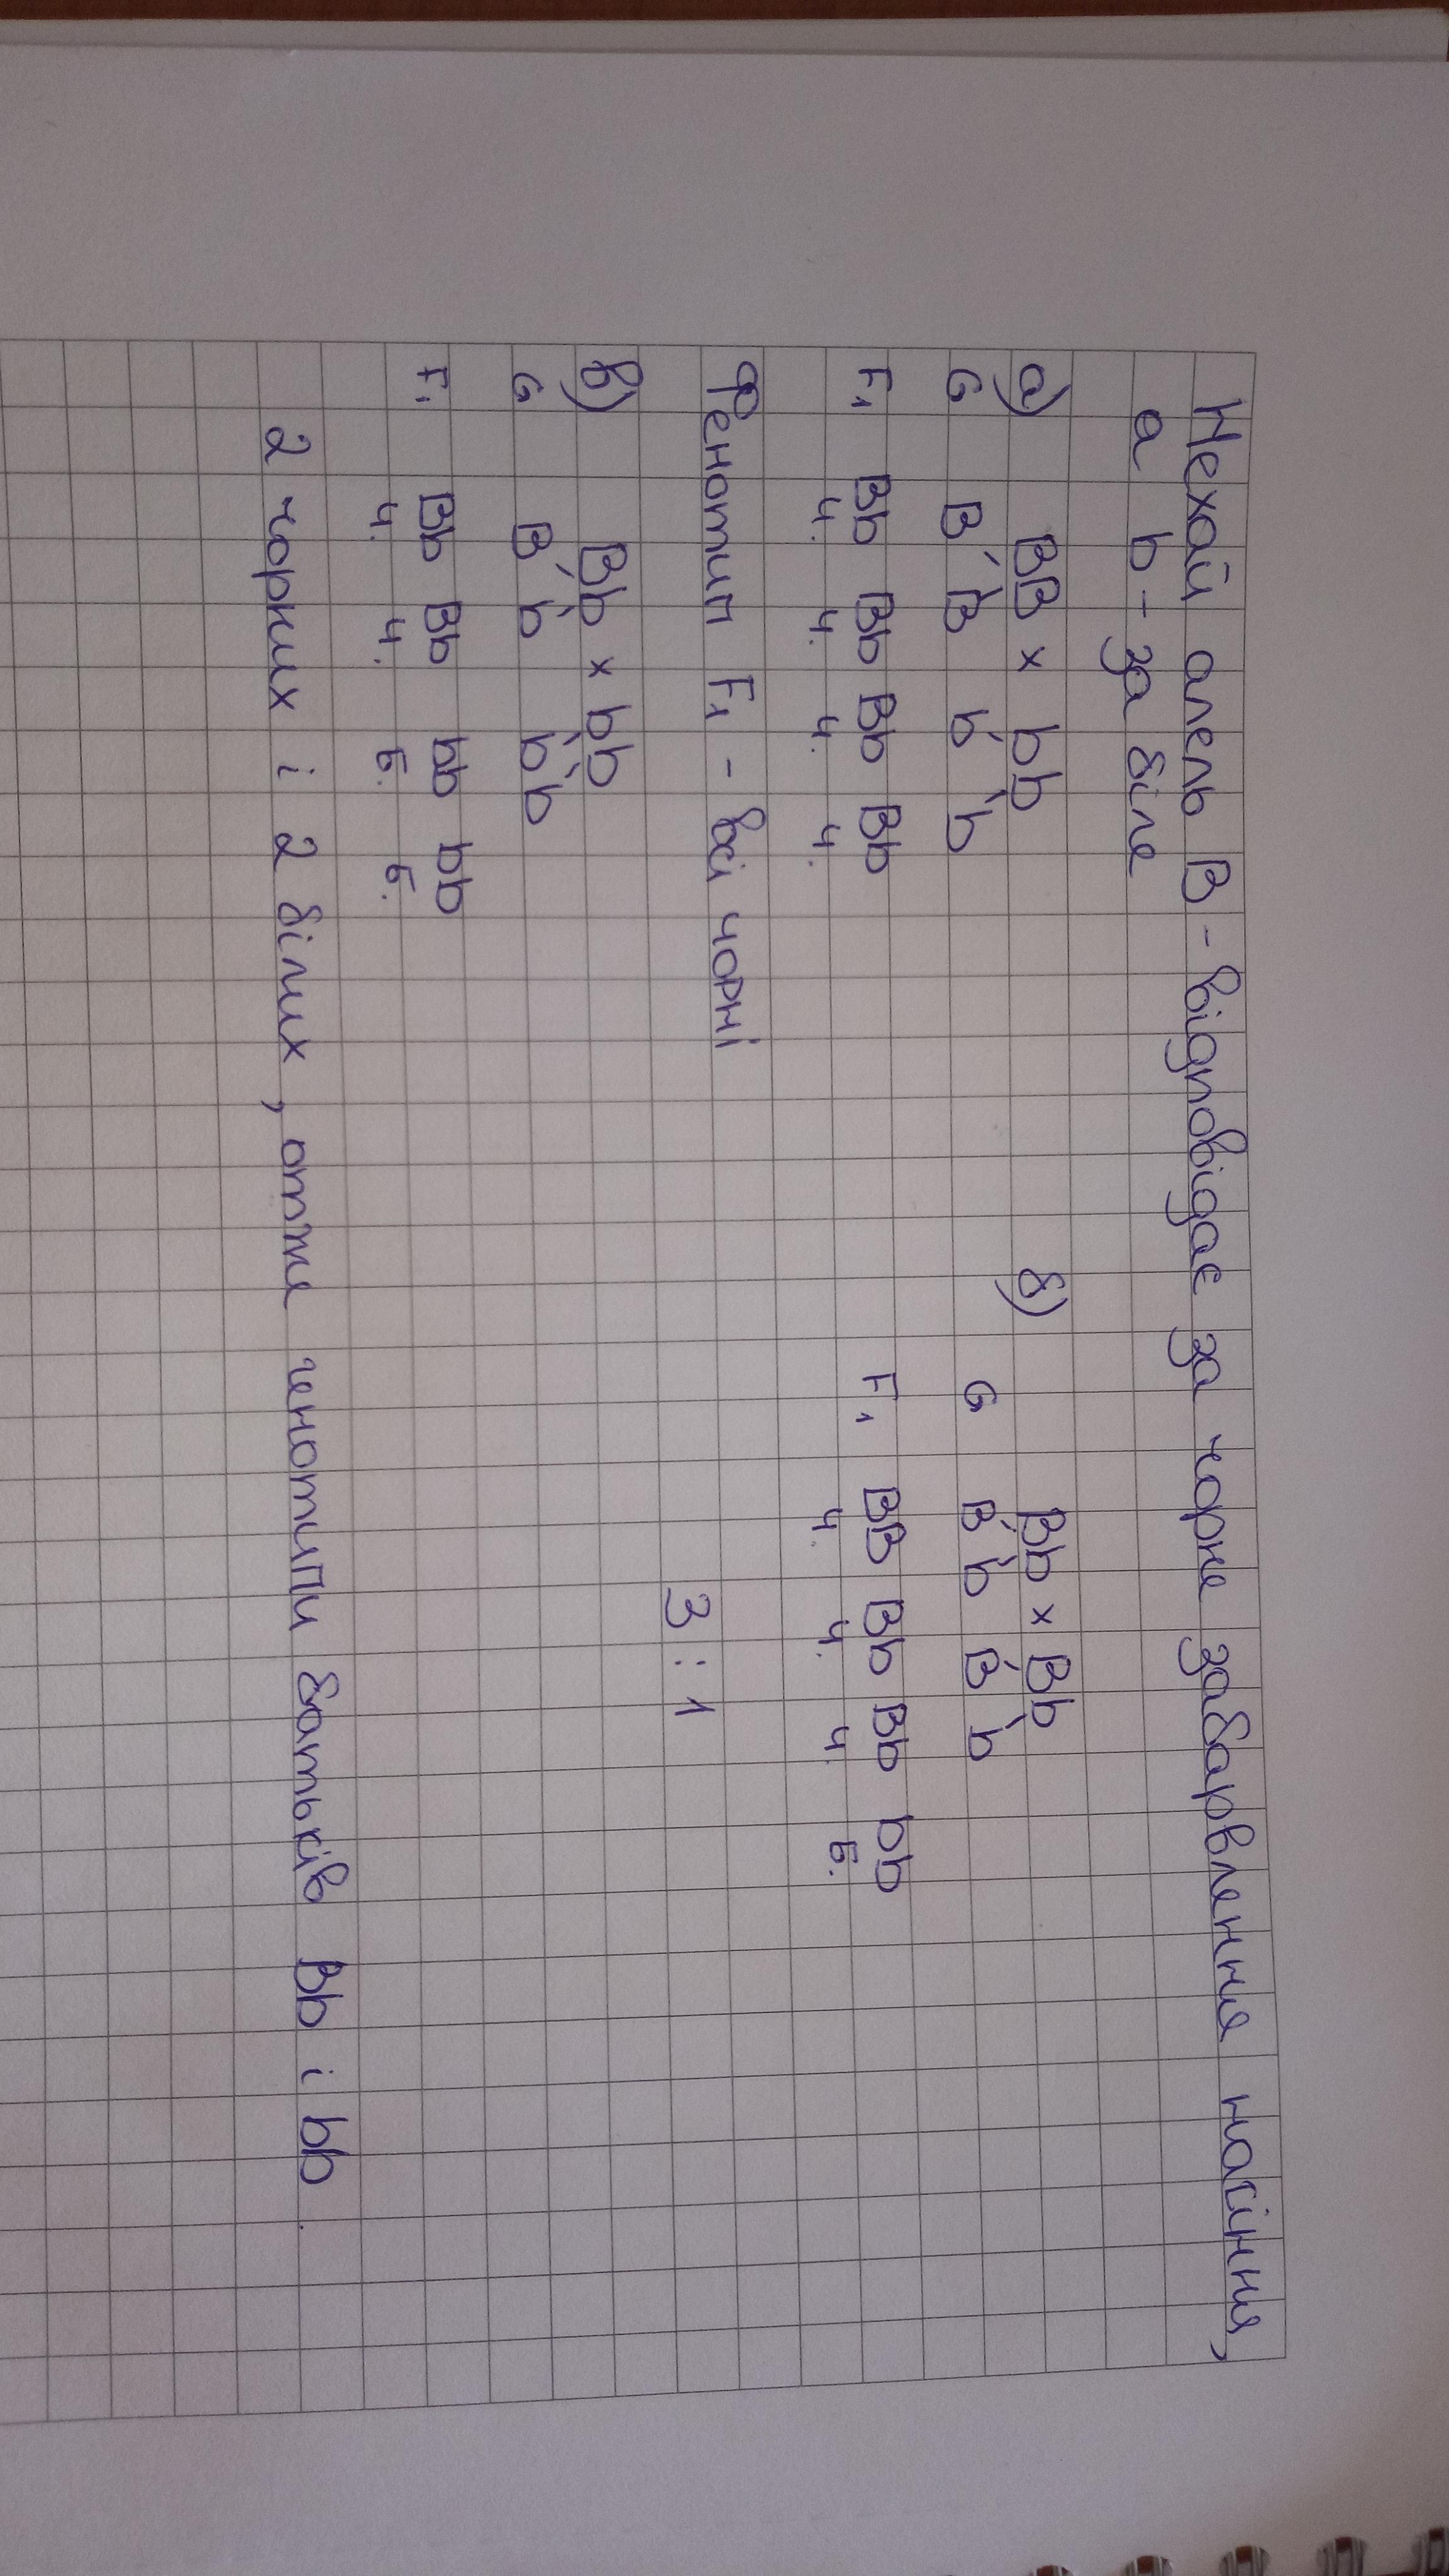 Нехай алель B - відповідає за чорне забарвлення насіння,
а b - за біле
а) BB x bb
G B B b b
F1 Bb Bb Bb Bb
ч. ч. ч. ч.
Фенотип F1 - всі чорні
б) Bb x Bb
G B b B b
F1 BB Bb Bb bb
ч. ч. ч. б.
3 : 1
в) Bb x bb
G B b b b
F1 Bb Bb bb bb
ч. ч. б. б.
2 чорних і 2 білих, отже генотипи батьків Bb і bb.